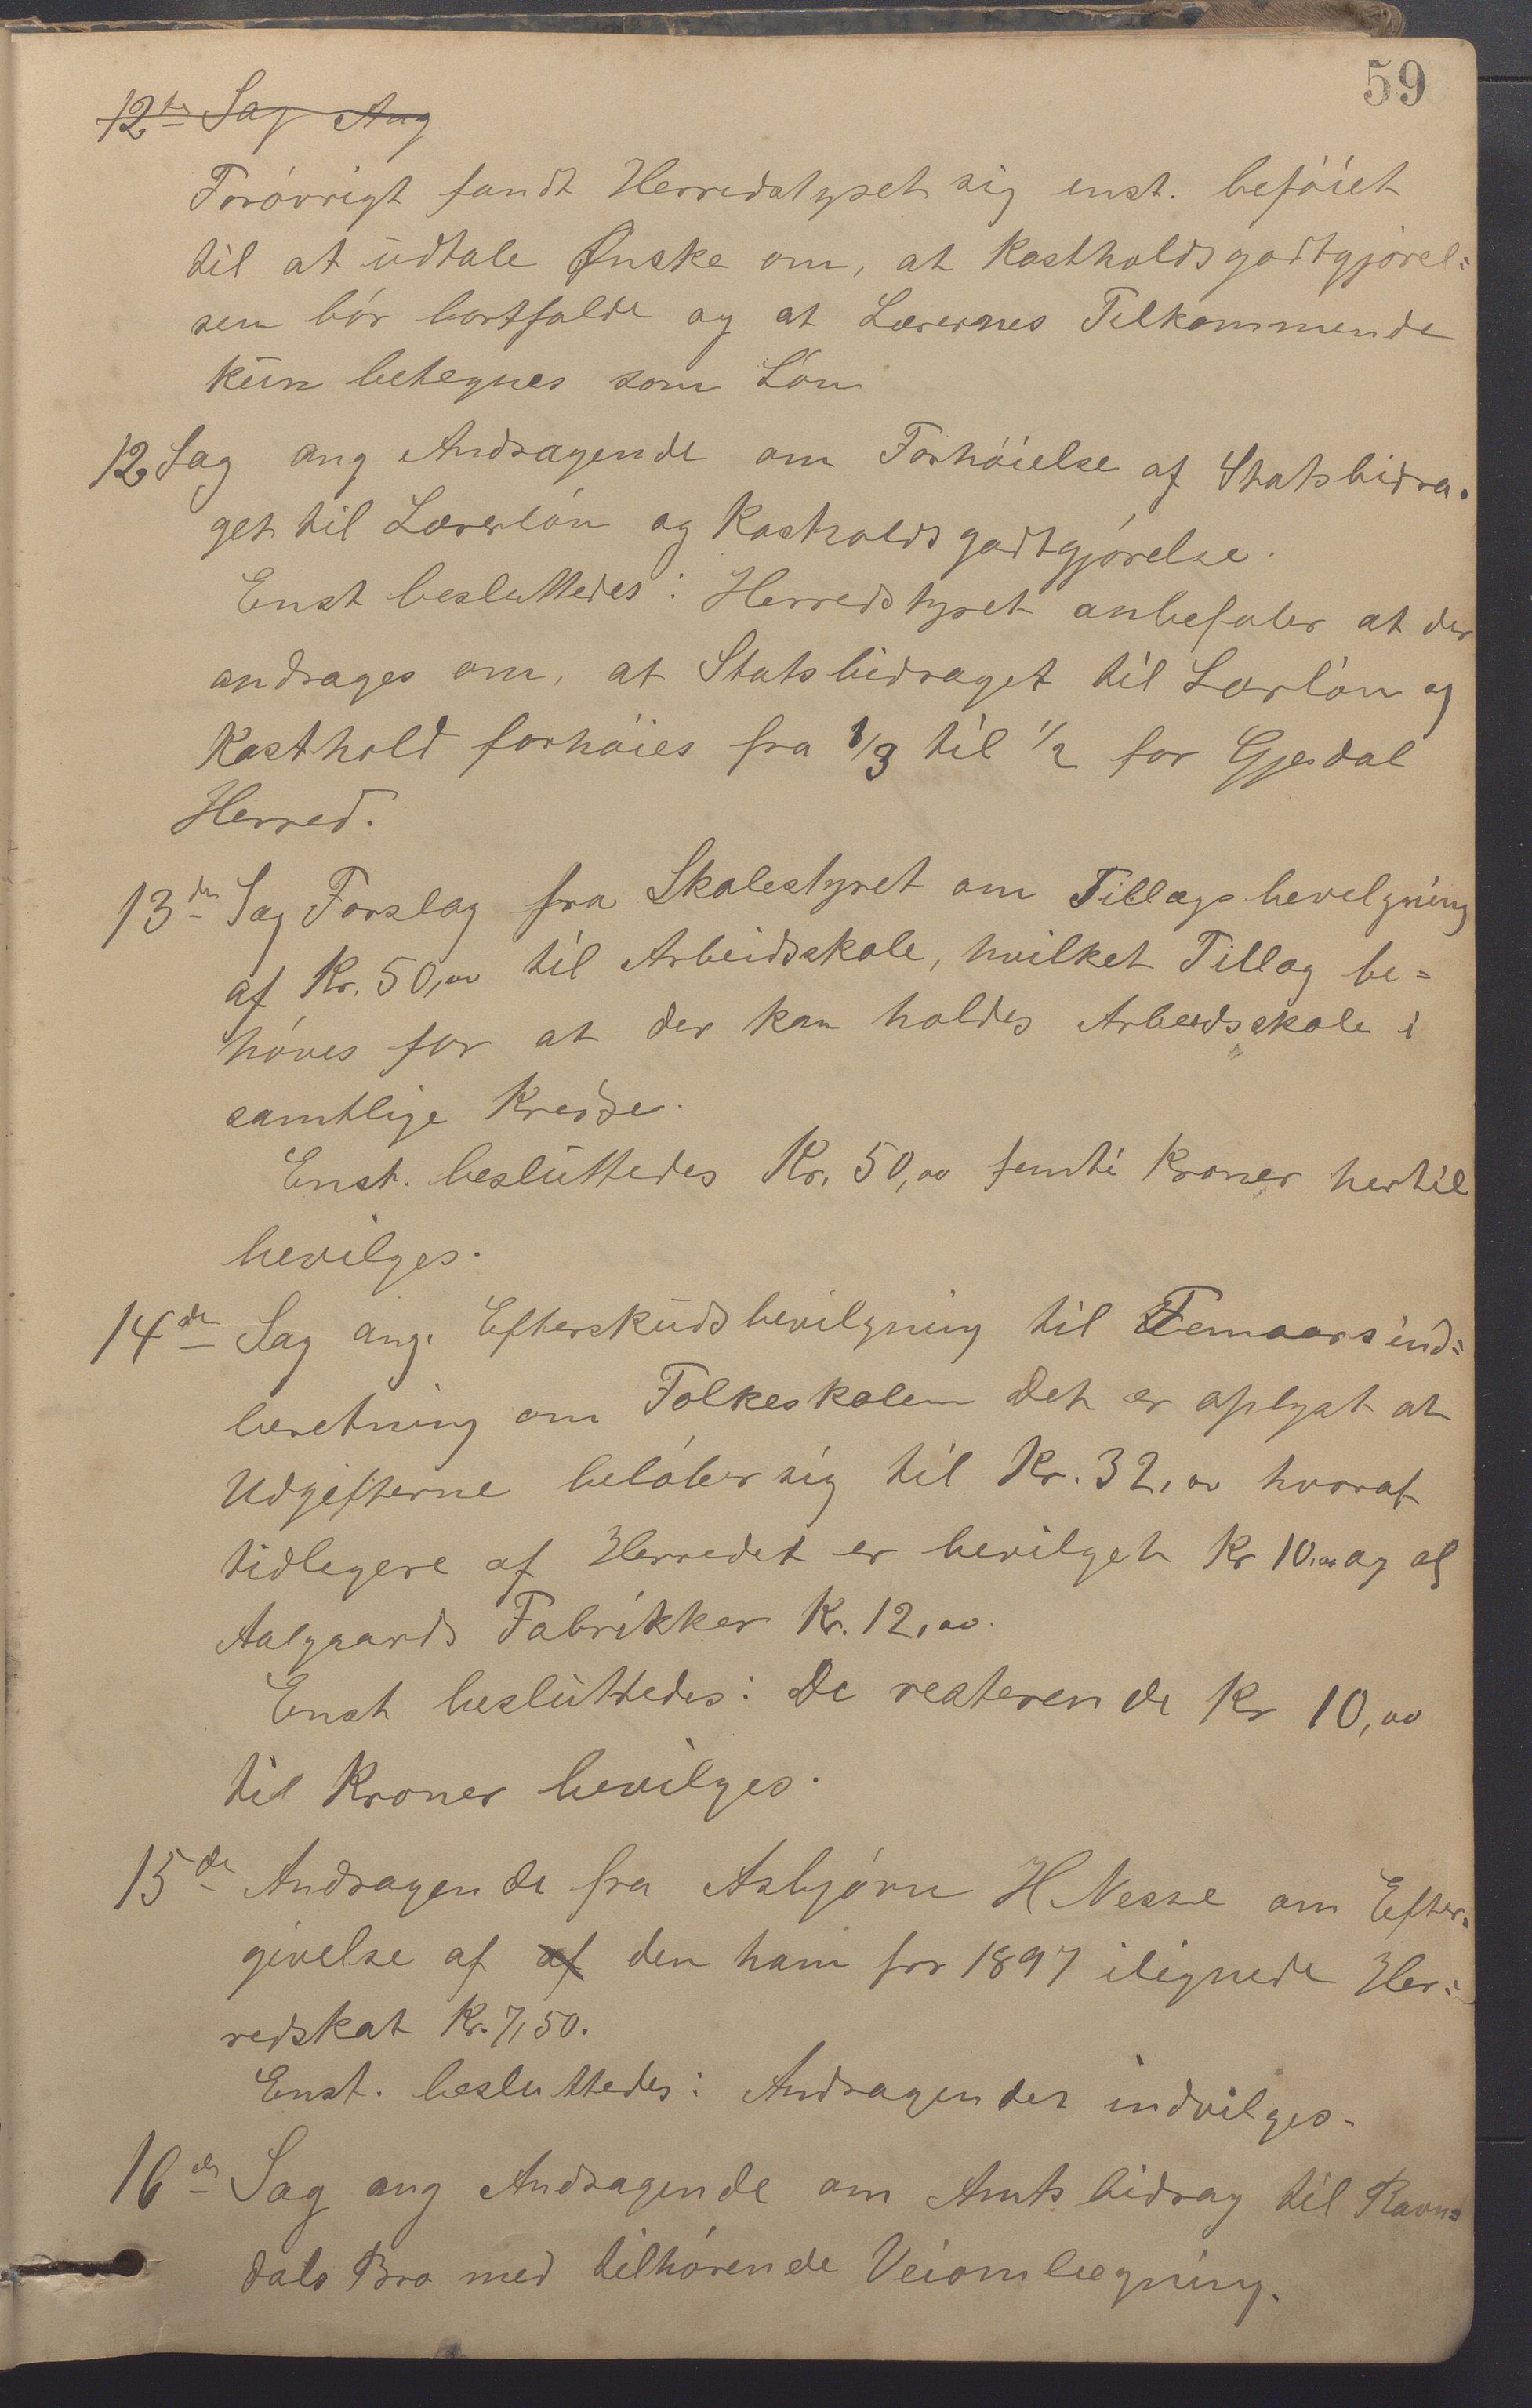 59
12te Sag Ang
Forøvrigt fandt Herredstyret sig enst. beføiet
til at udtale Ønske om, at Kostholdsgodtgjørel=
sen bør bortfalde og at Lærernes Tilkommende
kun betegnes som Løn
12, Sag ang Andragende om Forhøielse af Statsbidra=
get til Lærerløn og Kostholdsgodtgjørelse.
Enst besluttedes: Herredstyret anbefaler at der
andrages om, at Statsbidraget til Lærløn og
Kosthold forhøies fra 1/3 til 1/2 for Gjesdal
Herred.
13de Sag Forslag fra Skolestyret om Tillægsbevilgning
af Kr. 50,00 til Arbeidsskole, hvilket Tillæg be=
høves for at der kan holdes Arbeidsskole i
samtlige Kredse.
Enst. besluttedes Kr. 50,00 femti Kroner hertil
bevilges.
14de Sag ang. Efterskudsbevilgning til Femaarsind=
beretning om Folkeskolen Det er oplyst at
Udgifterne beløber sig til Kr. 32,00 hvoraf
tidligere af Herredet er bevilget Kr 10,00 og af
Aalgaards Fabrikker Kr. 12,00.
Enst besluttedes: De resterende Kr 10,00
til Kroner bevilges.
15de Andragende fra Asbjørn H Nesse om Efter=
givelse af af den ham for 1897 ilignede Her=
redskat Kr. 7,50.
Enst. besluttedes: Andragendet indvilges.
16de Sag ang Andragende om Amtsbidrag til Ravn=
dals Bro med tilhørende Veiomlægning.